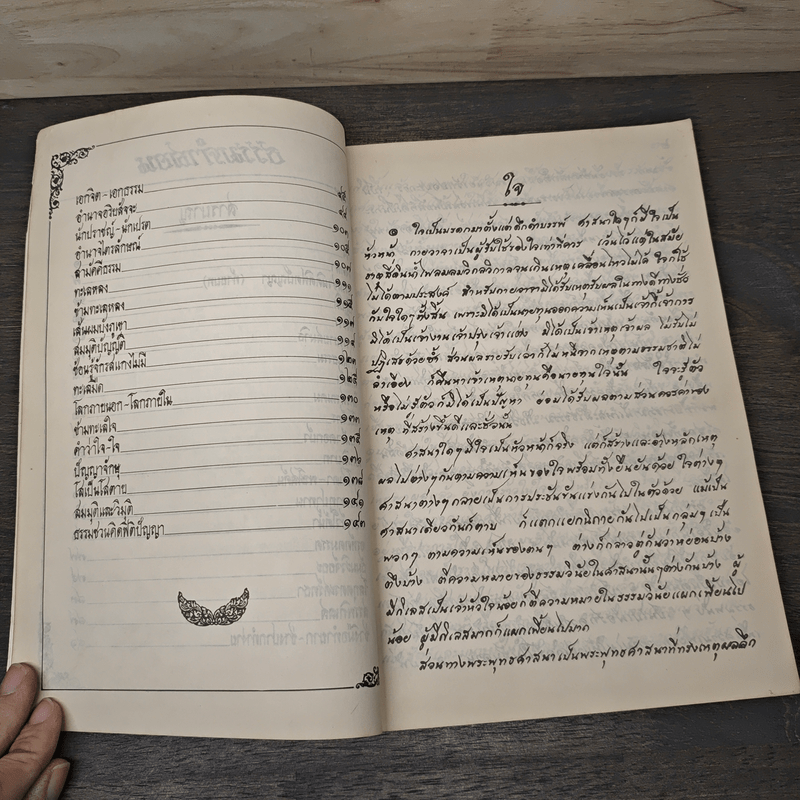 เอกจิต-เอกธรรม ๙๕
อำนาจอริยสัจจะ ๙๙
นักปราชญ์-นักเปรต ๑๐๓
อำนาจไตรลักษณ์ ๑๐๕
สามัคคีธรรม ๑๐๗
ทะเลหลง ๑๑๑
ข้ามทะเลหลง ๑๑๕
เส้นผมบังภูเขา ๑๑๗
สมมุติบัญญัติ ๑๑๙
ซ้อนรู้จักรสแกงไม่มี ๑๒๓
ทะเลมืด ๑๒๕
โลกภายนอก-โลกภายใน ๑๓๐
ข้ามทะเลใจ ๑๓๓
คำว่าใจ-ใจ ๑๓๕
ปัญญาจักษุ ๑๓๖
โสเป็นโสตาย ๑๓๘
สมมุติและวิมุติ ๑๔๑
ธรรมชวนคิดพิติปัญญา ๑๔๓
ใจ
๑ ใจเป็นมรดกมาตั้งแต่ดึกดำบรรพ์ ศาสนาใดๆก็มีใจเป็น
หัวหน้า กายวาจาเป็นผู้รับใช้ของใจเท่าที่ควร เว้นไว้แต่ในสมัย
ธาตุสี่ดินน้ำไฟลมวิกลวิกาลจนเกินเหตุเคลื่อนไหวไม่ได้ ใจก็ใช้
ไม่ได้ตามประสงค์ สำหรับกายวาจามิได้รับเหตุรับผลในทางดีทางชั่ว
กับใจใดๆทั้งสิ้น เพราะมิได้เป็นนายทุนออกความเห็นเป็นเจ้ากี้เจ้าการ
มิได้เป็นเจ้างานเจ้าปรุงเจ้าแต่ง มิได้เป็นเจ้าเหตุเจ้าผล ไม่รับไม่
ปฏิเสธด้วยซ้ำ ส่วนผลรายรับเล่าก็ไม่หนีจากเหตุตามธรรมชาติไม่
ลำเอียง ก็คืนหาเจ้าเหตุนายทุนคือนายทุนใจนั้น ใจจะรู้ตัว
หรือไม่รู้ตัวก็มิได้เป็นปัญหา ย่อมได้รับผลตามส่วนควรค่าของ
เหตุ ที่สร้างขึ้นดีและชั่วนั้น
ศาสนาใดๆมีใจเป็นหัวหน้าก็จริง แต่ก็สร้างและอ้างหลักเหตุ
ผลไปต่างๆกันตามความเห็นของใจพร้อมทั้งยืนยันด้วย ใจต่างๆ
ศาสนาต่างๆกลายเป็นการประชันขันแข่งกันไปในตัวด้วย แม้เป็น
ศาสนาเดียวกันก็ตาม ก็แตกแยกนิกายกันไปเป็นกลุ่มๆเป็น
พวกๆ ตามความเห็นของตนๆ ต่างก็กล่าวตู่กันว่าหย่อนบ้าง
ตึงบ้าง ตีความหมายของธรรมวินัยในศาสนานั้นๆต่างกันบ้าง ผู้
มีกิเลสเป็นเจ้าหัวใจน้อยก็ตีความหมายในธรรมวินัยแผกเพี้ยนไป
น้อย ผู้มีกิเลสมากก็แผกเพี้ยนไปมาก
ส่วนทางพระพุทธศาสนาเป็นพระพุทธศาสนาที่ทรงเหตุผลลึก